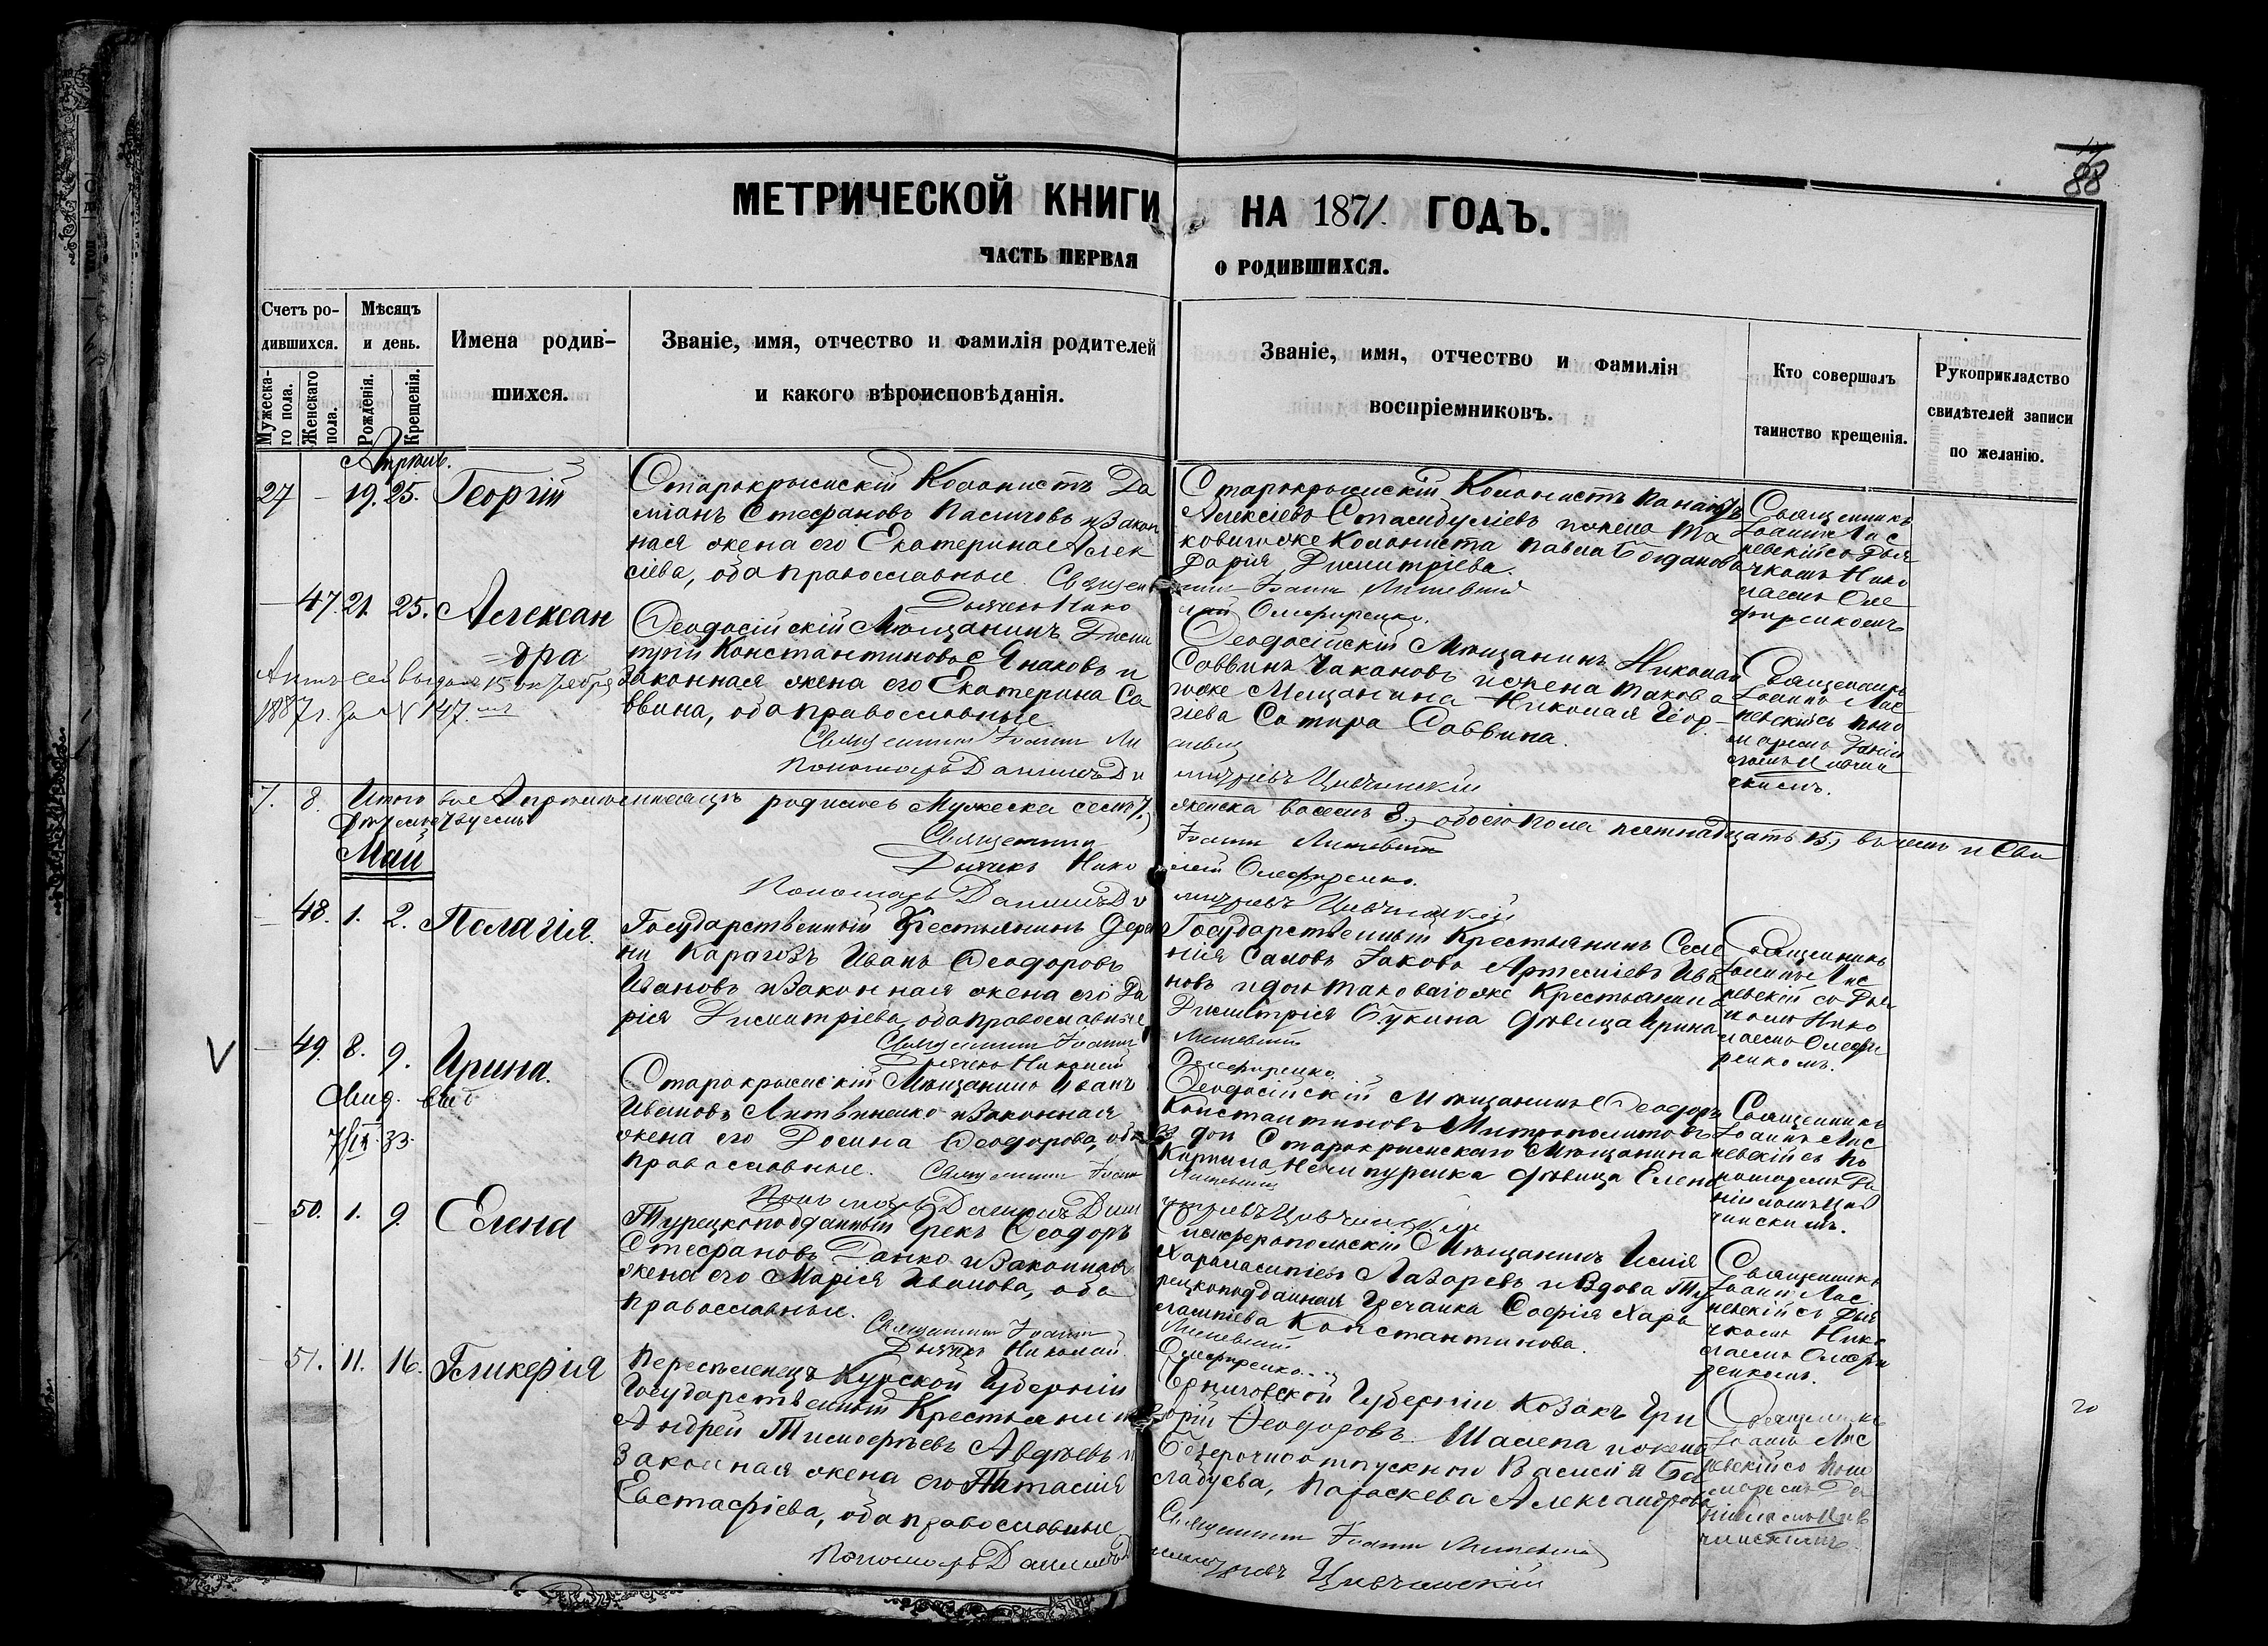 88
МЕТРИЧЕСКОЙ КНИГИ НА 1871 ГОДЪ.
ЧАСТЬ ПЕРВАЯ О РОДИВШИХСЯ.
Счетъ ро-
дившихся.
Мужеска-
го пола.
Женскаго
пола.
Мѣсяцъ
и день.
Рожденія.
Крещенія.
Имена родив-
шихся.
Званіе, имя, отчество и фамилія родителей
и какого вѣроисповѣданія.
Званіе, имя, отчество и фамилія
воспріемниковъ.
Кто совершалъ
таинство крещенія.
Рукоприкладство
свидѣтелей записи
по желанію.
27 - 19. 25. Георгій
Старокрымскій Колонистъ Да
міанъ Стефановъ и Закон
ная жена его Екатерина Алек
сіева, оба православные. Священ
Дьячекъ Нико
Старокрымскій Колонистъ
Алексіевъ и жена та
ковагоже Колониста Павла Богданова
Дарія Димитріева.
никъ Іоаннъ
лай Олефиренко.
Священникъ
Іоаннъ Лис
невскій съ Дья
чкомъ Нико
лаемъ Оле
фиренкомъ
- 47. 21. 25. Алексан
=дра
1887 г. за № 147.
Ѳеодосійскій Мѣщанинъ Дими
трій Константиновъ и
законная жена его Екатерина Са
ввина, оба православные
Священникъ Іоаннъ Ли
Пономарь Даніилъ Ди
Ѳеодосійскій Мѣщанинъ Николай
Саввинъ Чакановъ и жена таков а
гоже Мещанина Николая Геор-
гіева Сатира Саввина.
митріевъ Цивчинскій
Священникъ
Іоаннъ Лис
невскій съ поно
маремъ Даніи
ломъ Цивчин
скимъ.
7. 8. Итого въ Апрѣлѣ мѣсяцѣ родилось Мужеска семь 7, женска восемь 8, обоего пола пятнадцать 15, въ чемъ и Сви
дѣтельствуемъ
Священникъ Іоаннъ
Дьячекъ Николай Олефиренко.
Пономарь Даніилъ Димитріевъ Цивчинскій
Май
- 48. 1. 2. Пелагія.
Государственный Крестьянинъ Дерев
ни Карагозъ Иванъ Ѳеодоровъ
Ивановъ и Законная жена его Да
рія Димитріева, оба православные
Священникъ Іоаннъ
Дьячекъ Николай
Государственный Крестьянинъ Селе
нія Саловъ Іаковъ Артеміевъ Ива
новъ и дочь таковагоже Крестьянина
Димитрія Букина дѣвица Ирина
Олефиренко
Священникъ
Іоаннъ Лис
невскій съ Дья
чкомъ Нико
лаемъ Олефи
ренкомъ.
V
- 49. 8. 9. Ирина.
7/IX 33
Старокрымскій Мѣщанинъ Иванъ
Ивановъ Литвиненко и Законная
жена его Домна Ѳеодорова, оба
православные.
Священникъ Іоаннъ
Пономарь Даніилъ Дим
Ѳеодосійскій Мѣщанинъ Ѳеодоръ
Константиновъ Митрополитовъ
и доч Старокрымскаго Мѣщанина
Кирилла Нечипуренка дѣвица Елена
итріевъ Цивчинскій
Священникъ
Іоаннъ Лис
невскій съ По
номаремъ Да
ніиломъ Цив
чинскимъ.
- 50. 1. 9. Елена
Турецкоподданный Грекъ Ѳеодоръ
Стефановъ Данко и Законная
жена его Марія Иванова, оба
православные.
Священникъ Іоаннъ
Дьячекъ Николай
Симферопольскій Мѣщанинъ Илія
Харалампіевъ Лазаревъ и Вдова Ту
рецкоподданная Гречанка Софія Хара
лампіева Константинова.
Олефиренко
Священникъ
Іоаннъ Лис
невскій съ Дья
чкомъ Нико
лаемъ Олефи
ренкомъ.
- 51. 11. 16. Гликерія
Переселенецъ Курской Губерніи
Государственный Крестьянинъ
Андрей Тимоѳеевъ Авдѣевъ и
Законная жена его
Евстафіева, оба православные
Пономарь Даніилъ
Черниговской Губерніи Козакъ Гри
горій Ѳеодоровъ Шалепа и жена
безсрочноотпускного Василія Ба
Параскева Александрова
Священникъ Іоаннъ
Цивчинскій
Священникъ
Іоаннъ Лис
невскій съ Поно
маремъ Да
ніиломъ Цив
чинскимъ
20